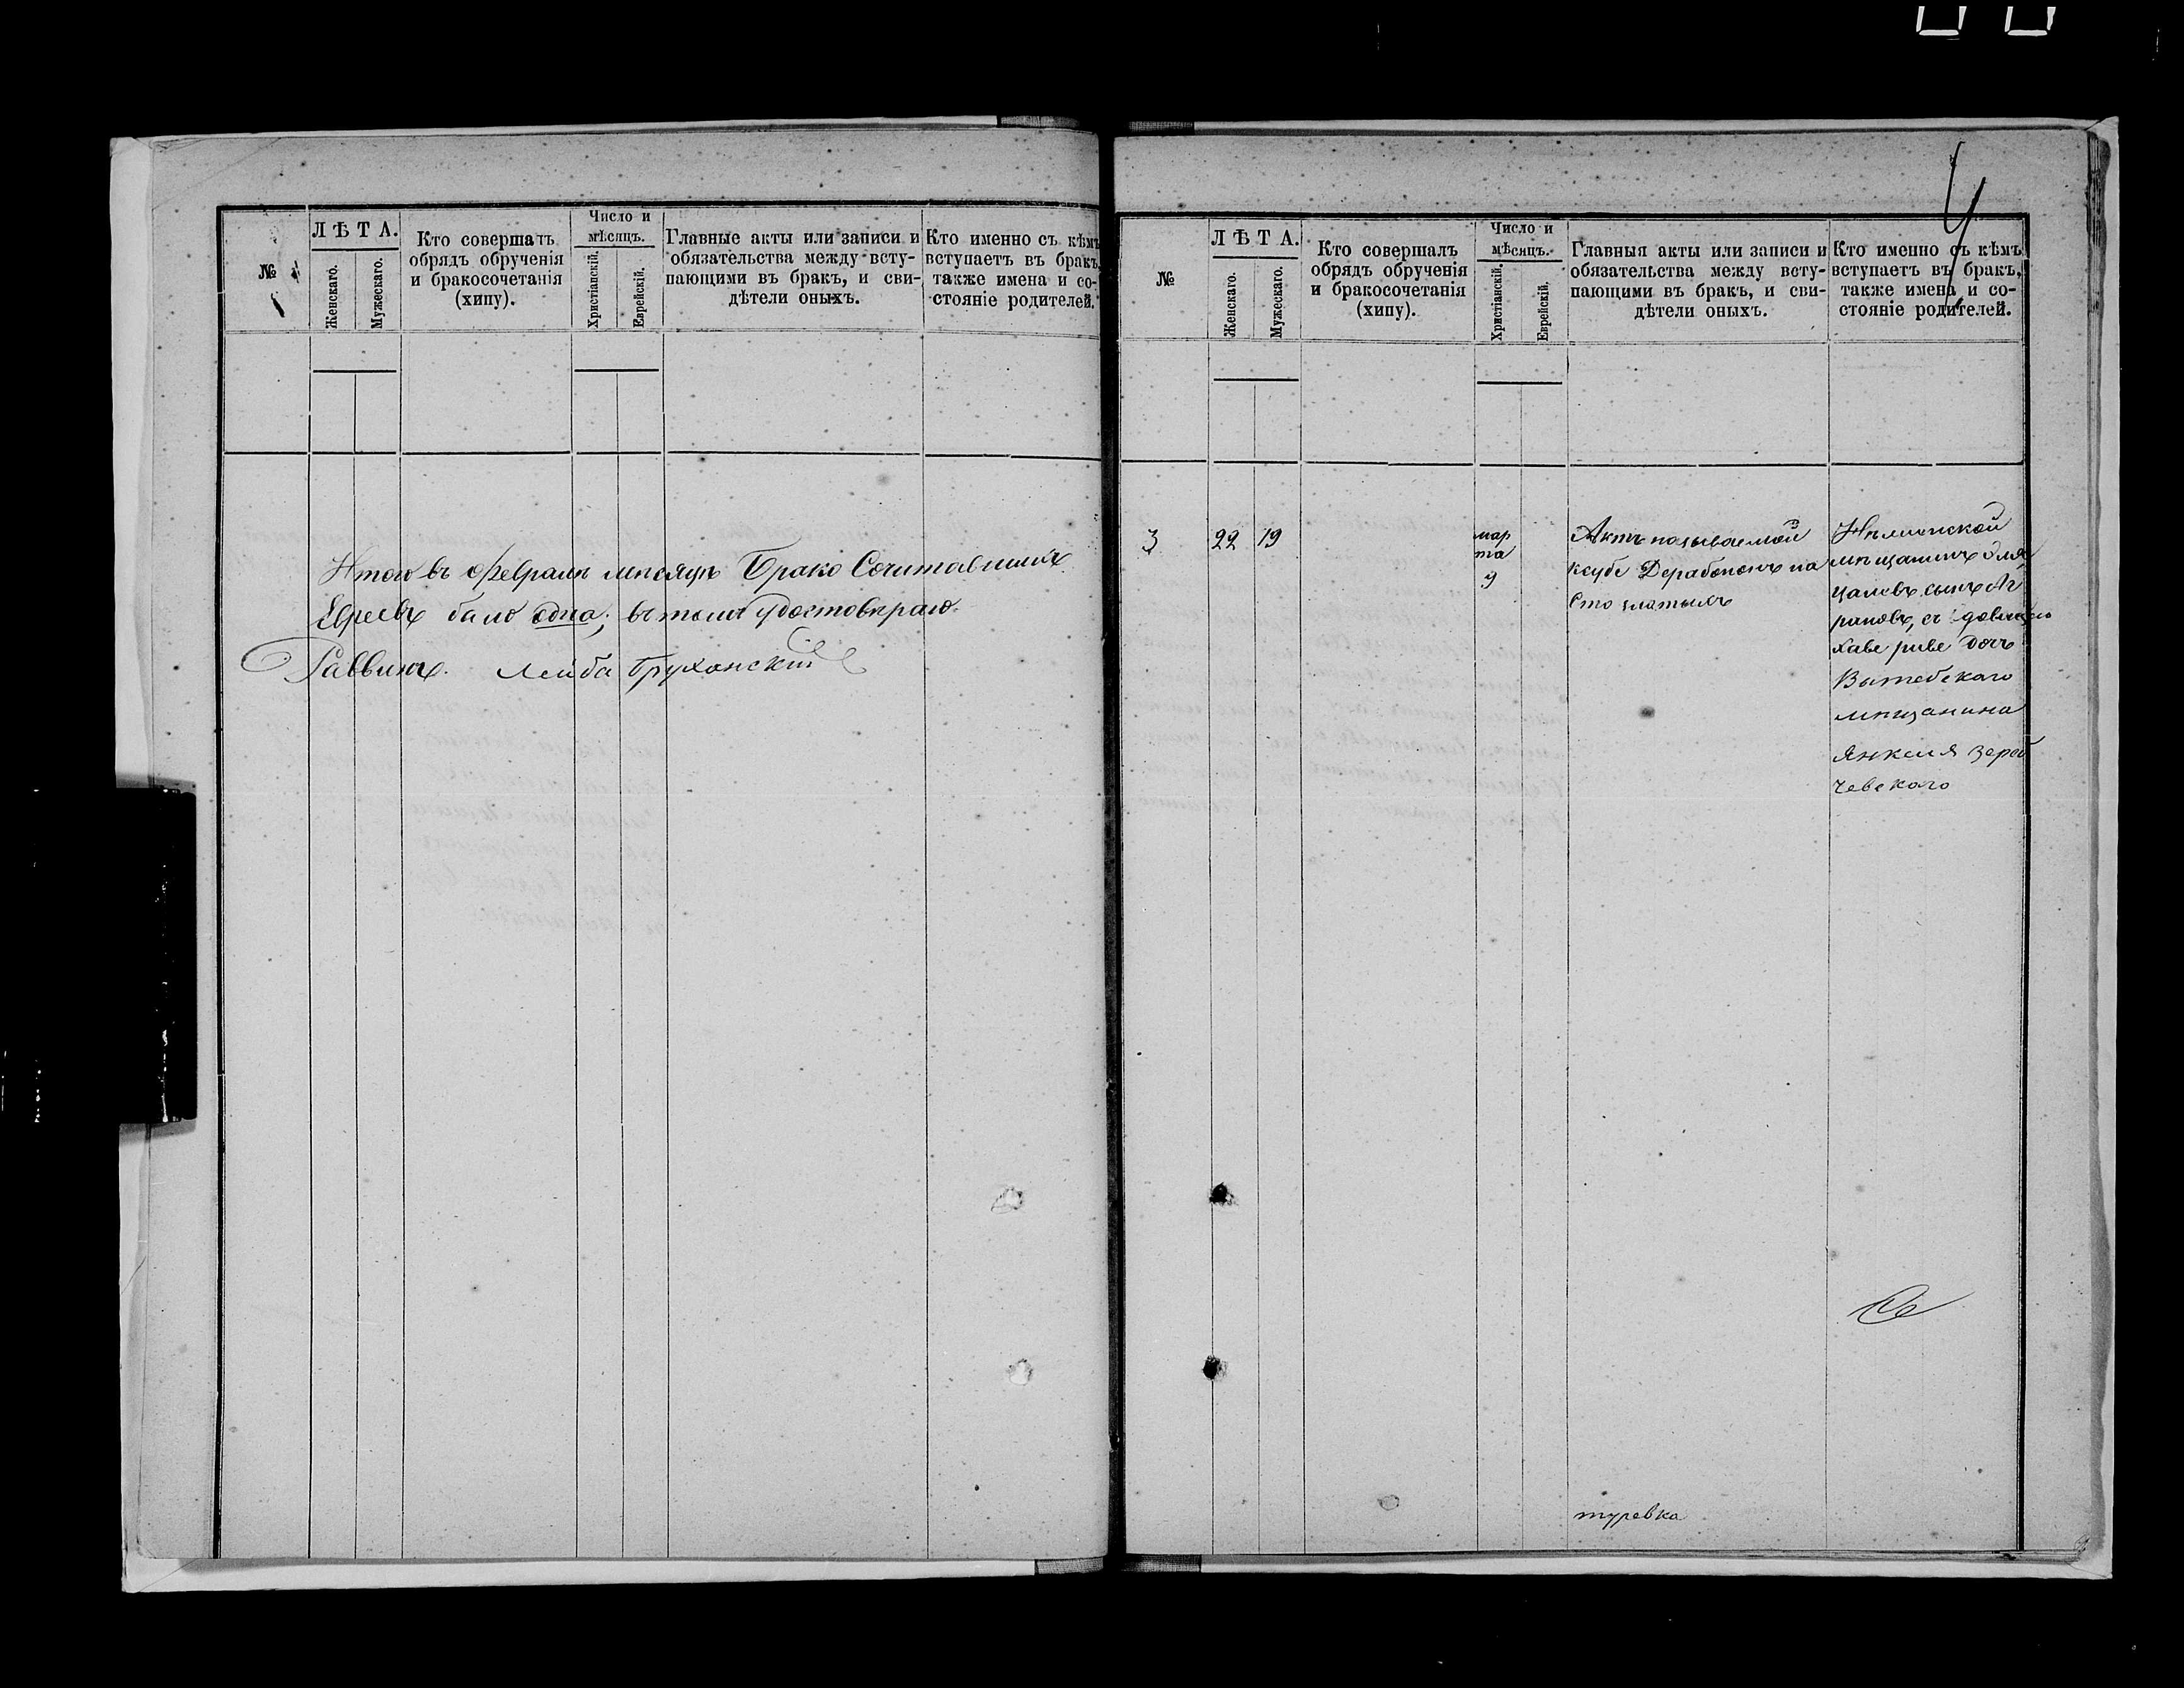 №
ЛѢТА.
Женскаго.
Мужескаго.
Кто совершалъ
обрядъ обрученія
и бракосочетанія
(хипу).
Число и
мѣсяцъ.
Христіанскій.
Еврейскій.
Главные акты или записи и
обязательства между всту-
пающими въ бракъ, и сви-
дѣтели оныхъ.
Кто именно съ кѣмъ
вступаетъ въ бракъ,
также имена и со-
стояніе родителей.
Итого въ Февралѣ мѣсяцѣ Брако Сочитавшихъ
Евреевъ было одна; въ томъ удостовѣраю.
Раввинъ. Лейба Бруханскій
4
№
ЛѢТА.
Женскаго.
Мужескаго.
Кто совершалъ
обрядъ обрученія
и бракосочетанія
(хипу).
Число и
мѣсяцъ.
Христіанскій.
Еврейскій.
Главныя акты или записи и
обязательства между всту-
пающими въ бракъ, и сви-
дѣтели оныхъ.
Кто именно съ кѣмъ
вступаетъ въ бракъ,
также имена и со-
стояніе родителей.
3
22
19
мар
та
9
Актъ называемой
ксубе Дерабононъ на
сто златыхъ
мѣщанинъ
сынъ
съ
Хаве риве дочъ
Витебскаго
мѣщанина
Янкеля
чевскаго
туревка